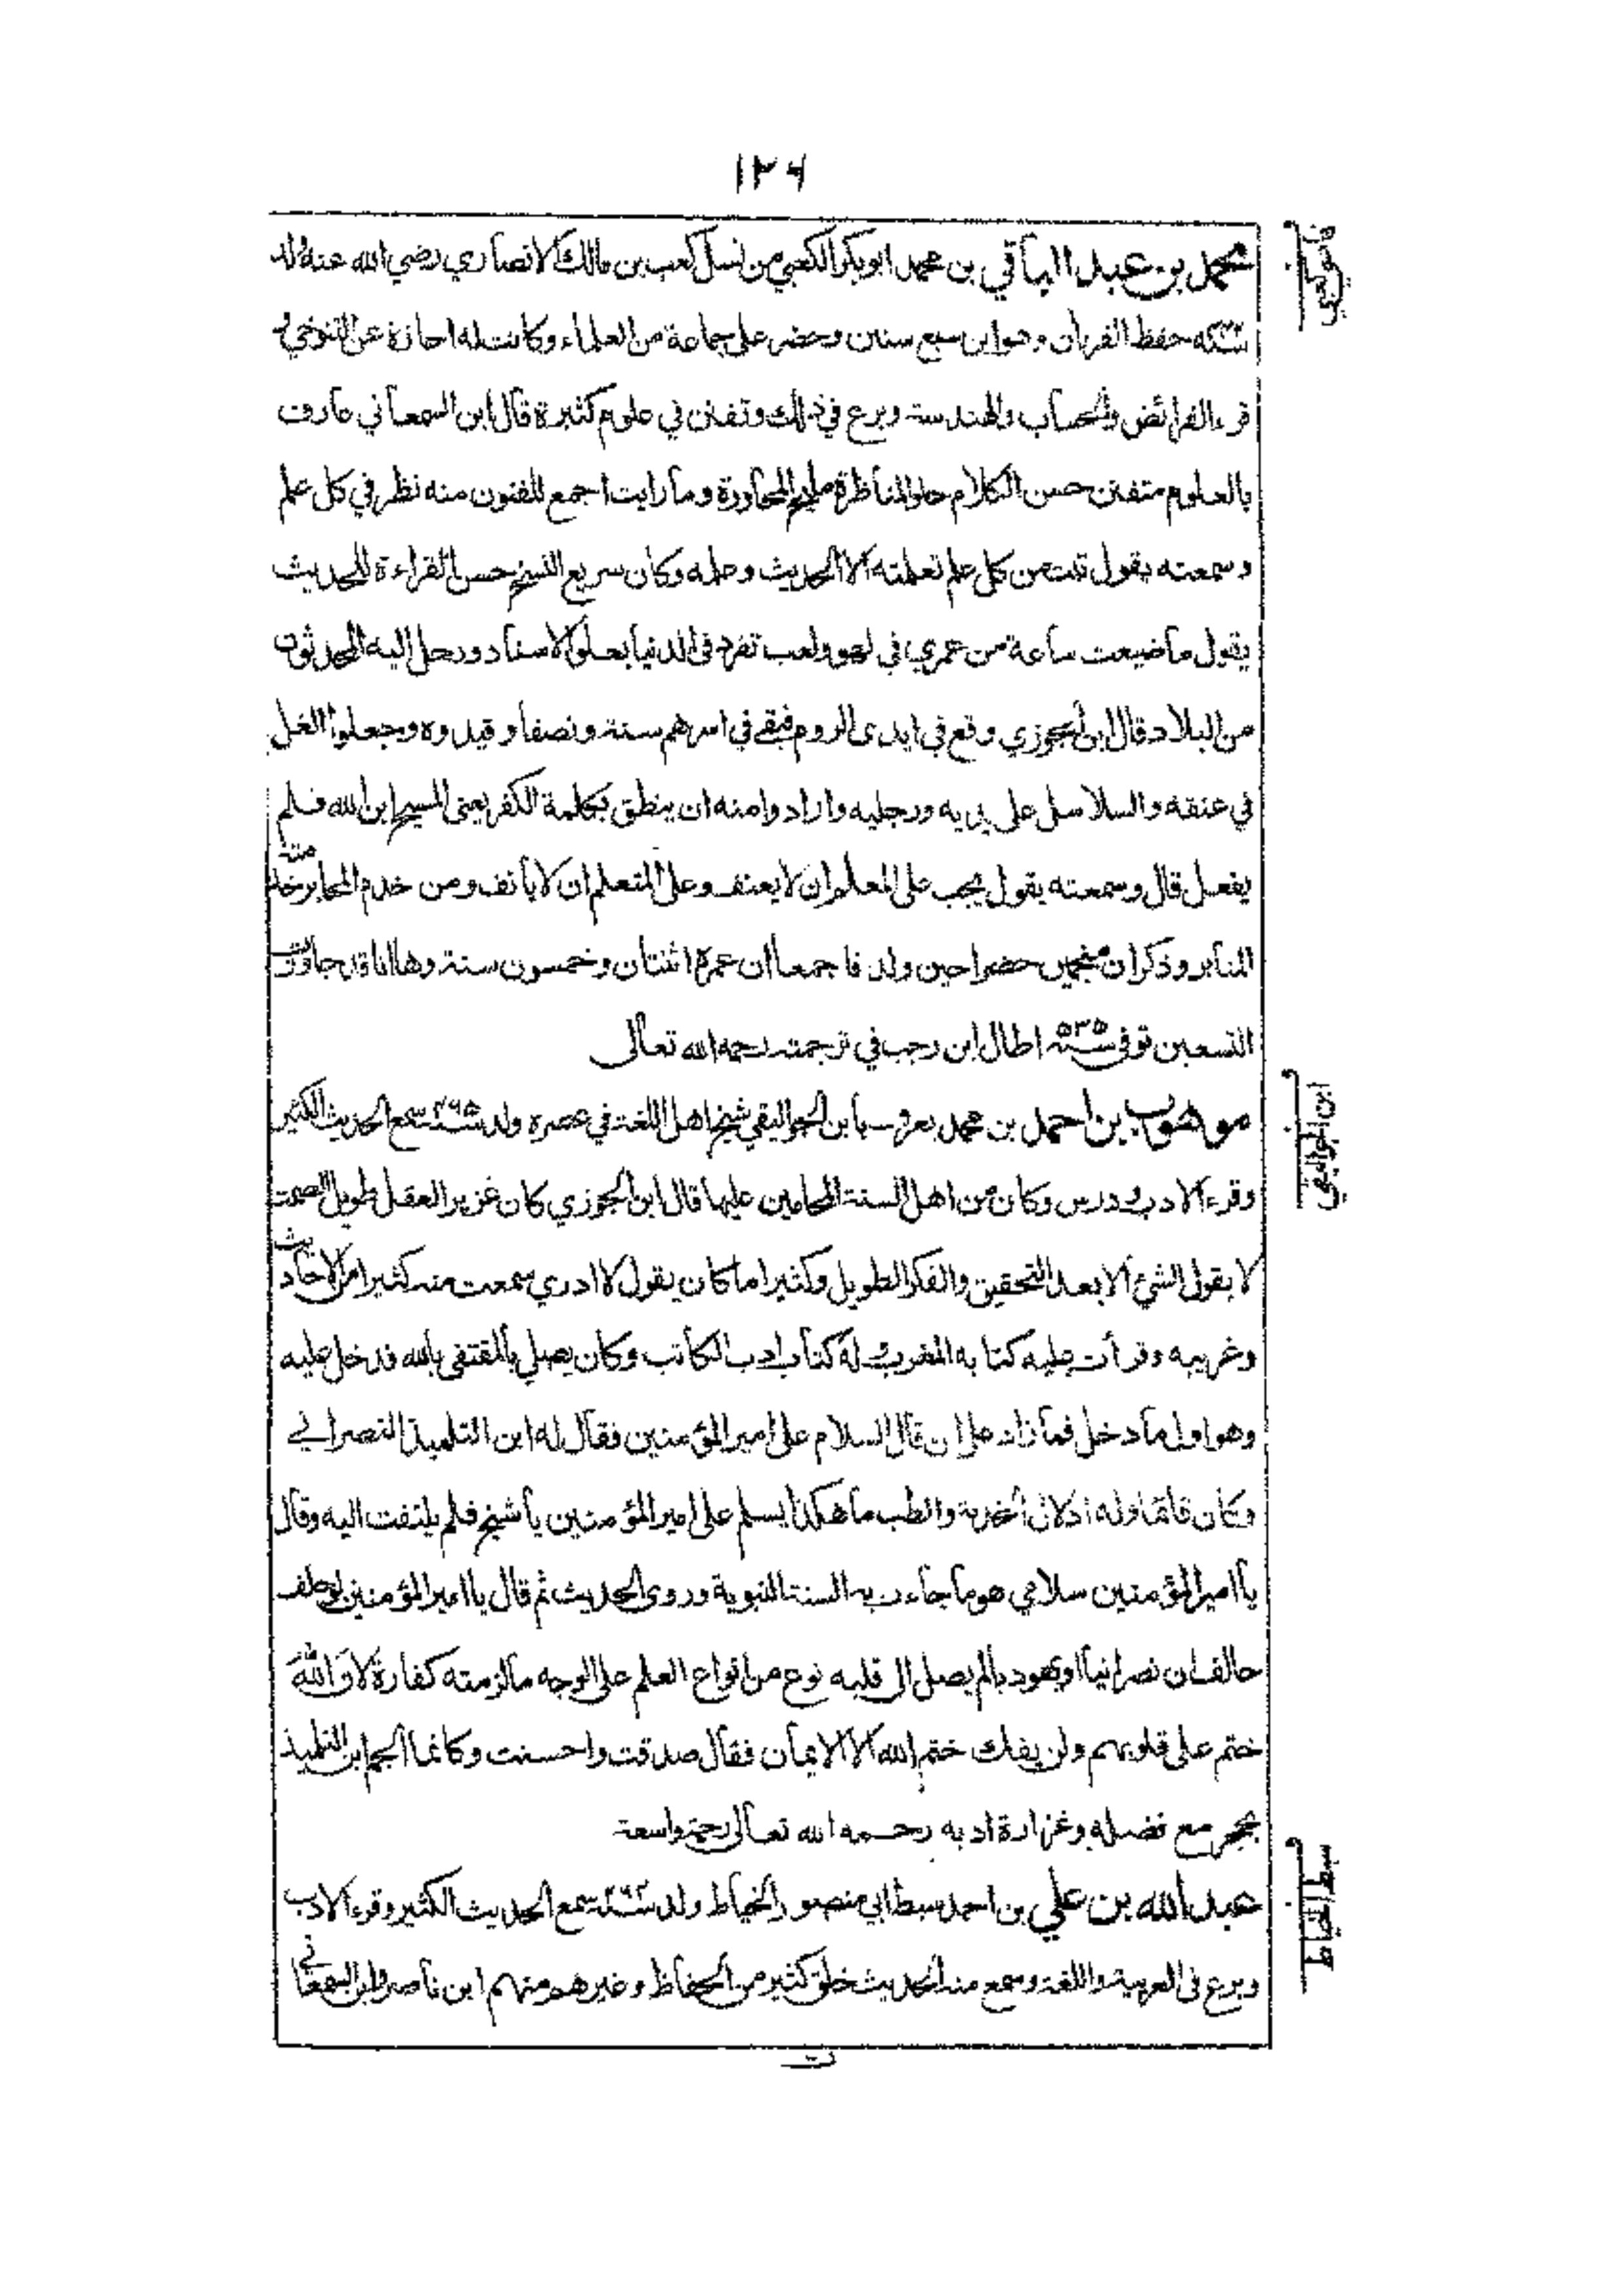 ١٢٦
محمد بن عبد الباقي بن محمد ابو بكر الكعبي من نسل كعب بن مالك الانصاري رضي الله عنه ولد
حفظ القرءان وهو ابن سبع سنين وحضر على جماعة من العلماء وكانت له اجازة عن التنوخي
قرء الفرائض والحساب والهندسة وبرع في ذلك وتفنن في علوم كثيرة قال ابن السمعاني عارف
بالعلوم متفنن حسن الكلام حلو المناظرة مليح المحاورة وما رايت اجمع للفنون منه نظر في كل علم
وسمعته يقول تبت من كل علم تعلمته الا الحديث وعلمه وكان سريع النسخ حسن القراءة للحديث
يقول ما ضيعت ساعة من عمري في لهو ولعب تفرد في الدنيا بعلو الاسناد ورحل اليه المحدثون
من البلاد قال ابن الجوزي وقع في ايدى الروم فبقي في اسرهم سنة ونصفا وقيدوه وجعلوا الغل
في عنقه والسلاسل على يديه ورجليه وارادوا منه ان ينطق بكلمة الكفر يعنى المسيح ابن الله فلم
يفعل قال وسمعته يقول يجب على المعلم ان لا يعنف وعلى المتعلم ان لا يأنف ومن خدم المحابر خدمته
المنابر وذكر ان منجمين حضرا حين ولد فاجمعا ان عمره اثنتان وخمسون سنة وها انا قد جاوزت
التسعين توفى سنة ٥٣٥ اطال ابن رجب في ترجمته رحمه الله تعالى
موهوب بن احمد بن محمد يعرف بابن الجواليقي شيخ اهل اللغة في عصره ولد سنة ٤٦٥ سمع الحديث الكثير
وقرء الادب ودرس وكان من اهل السنة المحامين عليها قال ابن الجوزي كان غزير العقل طويل الصمت
لا يقول الشئ الا بعد التحقيق والفكر الطويل وكثيرا ما كان يقول لا ادري سمعت منه كثيرا من الاحاديث
وغريبه وقرأت عليه كتابه المغرب له كتاب ادب الكاتب وكان يصلي بالمقتفى بالله فدخل عليه
وهو اول ما دخل فما زاد على ان قال السلام على امير المؤمنين فقال له ابن التلميذ النصراني
وكان قائما وله ادلال الخدمة والطب ما هكذا يسلم على امير المؤمنين يا شيخ فلم يلتفت اليه وقال
يا امير المؤمنين سلامي هو ما جاءت به السنة النبوية وروى الحديث ثم قال يا امير المؤمنين لو حلف
حالف ان نصرانيا او يهوديا لم يصل الى قلبه نوع من انواع العلم على الوجه ما لزمته كفارة لان الله
ختم على قلوبهم ولن يفك ختم الله الا الايمان فقال صدقت واحسنت وكانما الجم ابن التلميذ
بحجر مع فضله وغزارة ادبه رحمه الله تعالى رحمة واسعة
عبد الله بن علي بن احمد سبط ابي منصور الخياط ولد سنة ٤٦٤ سمع الحديث الكثير وقرء الادب
وبرع في العربية واللغة وسمع منه الحديث خلق كثير من الحفاظ وغيرهم منهم ابن ناصر وابن السمعاني
ابن الجواليقي